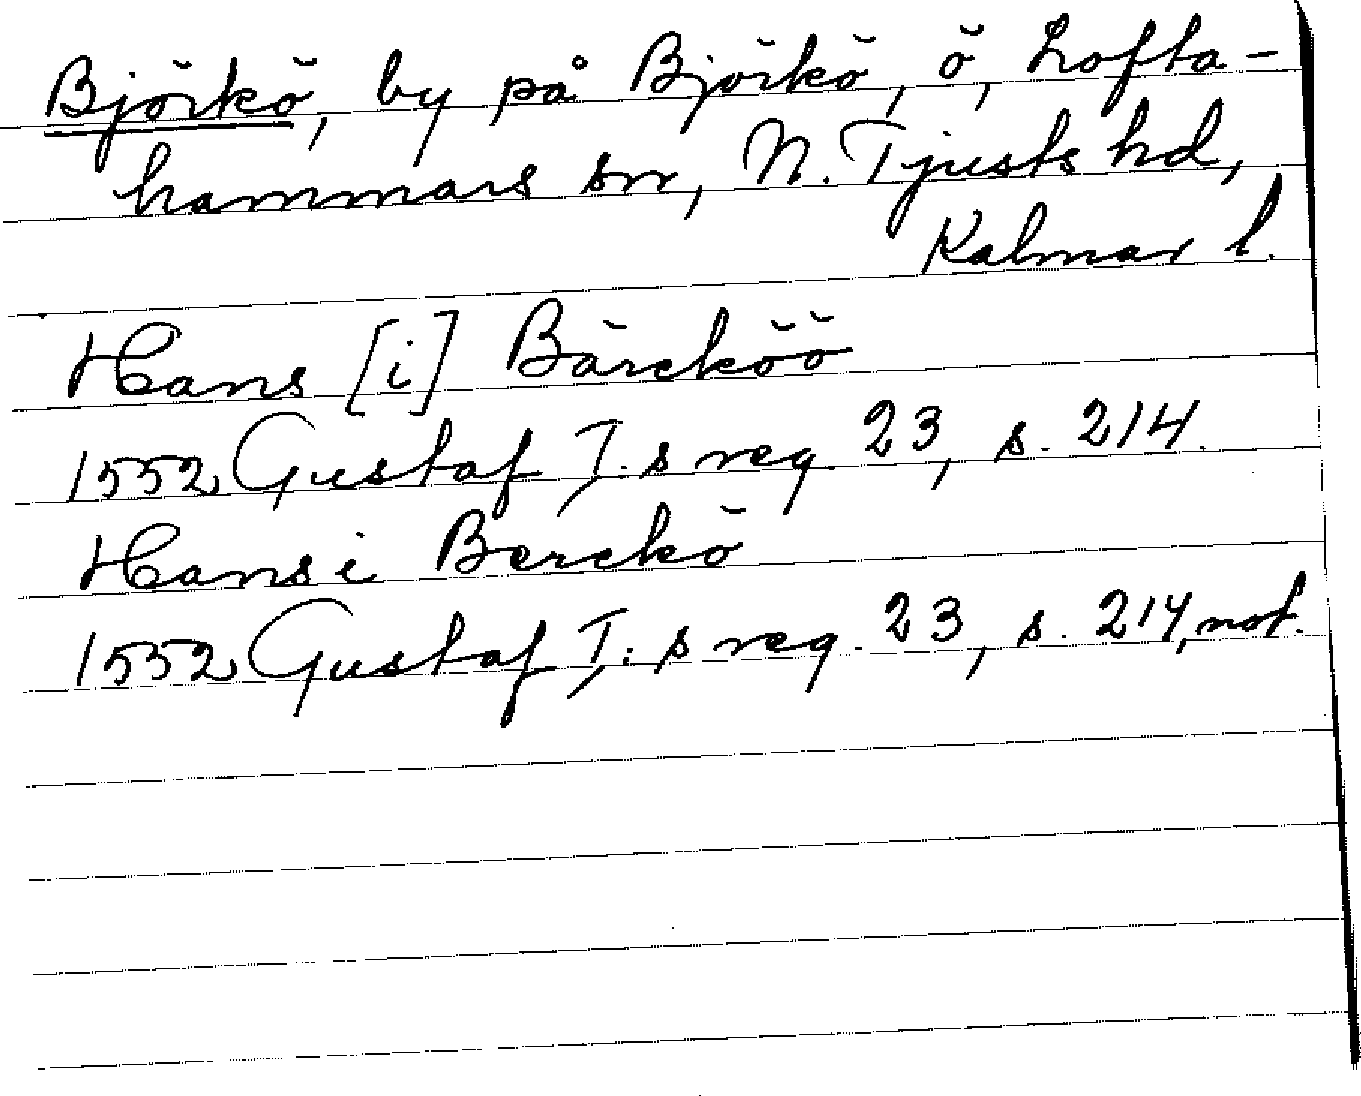 Björkö, by på Björkö, ö, Lofta-
hammars sn, N. Tjusts hd,
Kalmar l.
Hans [i] Bärcköö
1552 Gustaf I.s reg 23, s. 214.
Hans i Berckö
1552 Gustaf I.s reg. 23, s. 214, not.